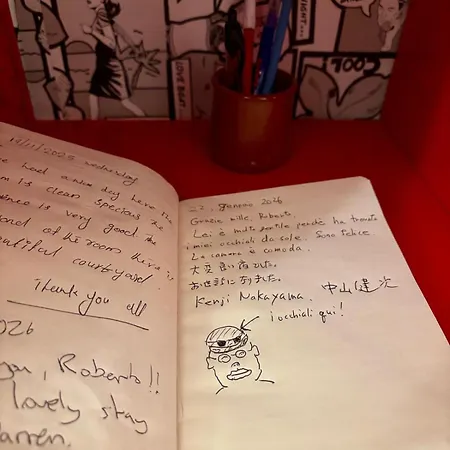 19/11/2025 wednesday
had a nice day here the
m is clean specious the
ince is very good the
ond of the room there is
utiful courtyard.
Thank you all
2026
you, Roberto!!
lovely stay
arren.
22, gennaio 2026
Grazie mille, Roberto.
Lei è molto gentile perché ha trovato
i miei occhiali da sole. Sono felice.
La camera è comoda.
大変良い宿でした。
お世話になりました。
Kenji Nakayama. 中山健次
i occhiali qui!